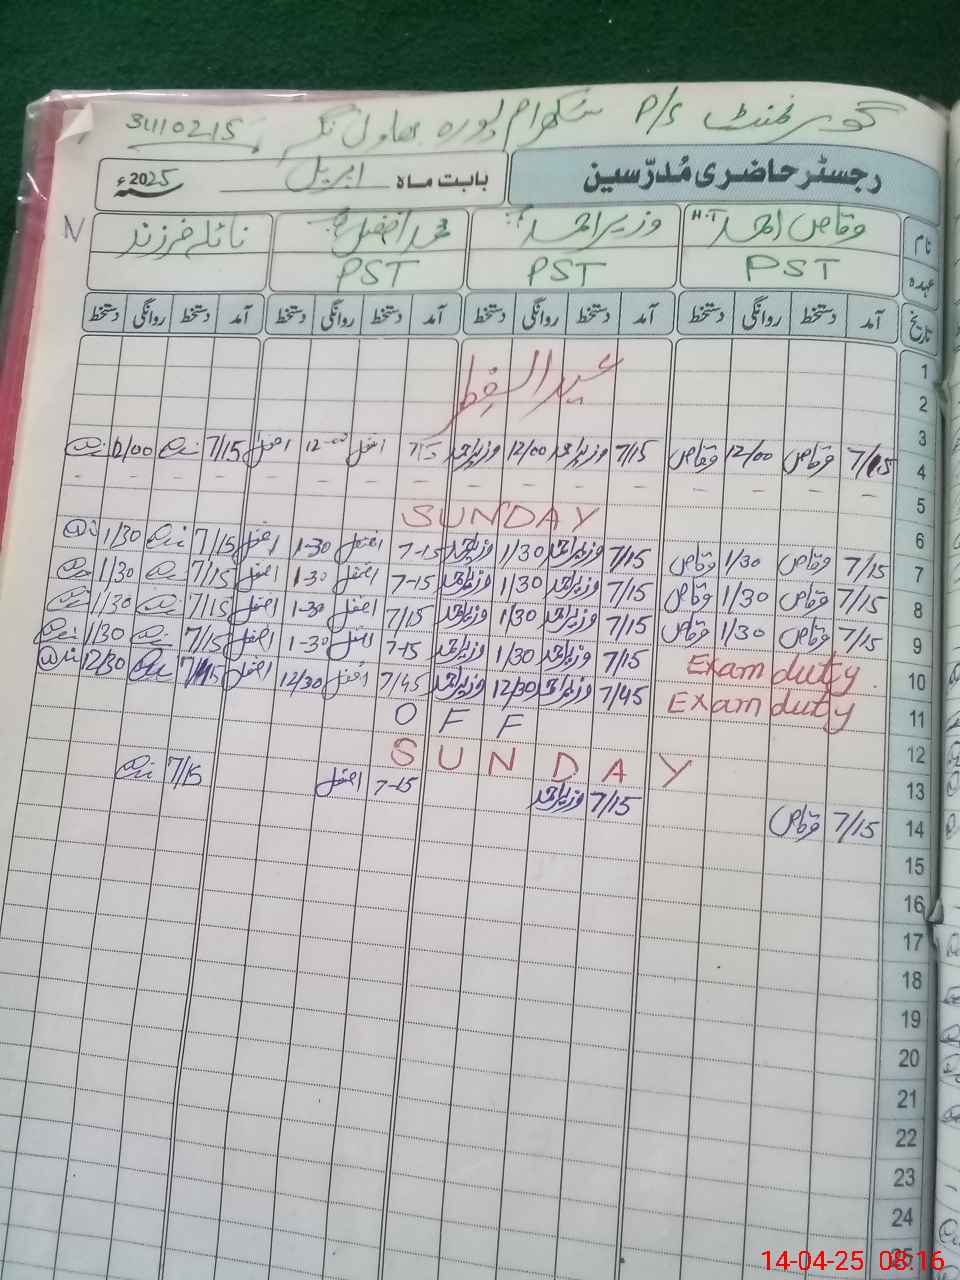 گورنمنٹ P/S سنگھرام پورہ بھاول نگر 31110215
رجسٹر حاضری مُدرّسین
بابت ماہ اپریل 2025ء
نام وقاص احمد H.T وزیر احمد محمد افضل نائلہ فرزند
عہدہ PST PST PST
تاریخ آمد دستخط روانگی دستخط آمد دستخط روانگی دستخط آمد دستخط روانگی دستخط آمد دستخط روانگی دستخط
1
عید الفطر
2
3
4 7/15 وقاص 12/00 وقاص 7/15 وزیر احمد 12/00 وزیر احمد 7/15 افضل 12-00 افضل 7/15 12/00
5 - - - - - - - - - - - - - - - -
6 SUNDAY
7 7/15 وقاص 1/30 وقاص 7/15 وزیر احمد 1/30 وزیر احمد 7-15 افضل 1-30 افضل 7/15 1/30
8 7/15 وقاص 1/30 وقاص 7/15 وزیر احمد 1/30 وزیر احمد 7-15 افضل 1-30 افضل 7/15 1/30
9 7/15 وقاص 1/30 وقاص 7/15 وزیر احمد 1/30 وزیر احمد 7/15 افضل 1-30 افضل 7/15 1/30
10 Exam duty 7/15 وزیر احمد 1/30 وزیر احمد 7-15 افضل 1-30 افضل 7/15 1/30
11 Exam duty 7/45 وزیر احمد 12/30 وزیر احمد 7/45 افضل 12/30 افضل 12/30
12 OFF
13 SUNDAY
14 7/15 وقاص 7/15 وزیر احمد 7-15 افضل 7/15
15
16
17
18
19
20
21
22
23
24
25
14-04-25 08:16